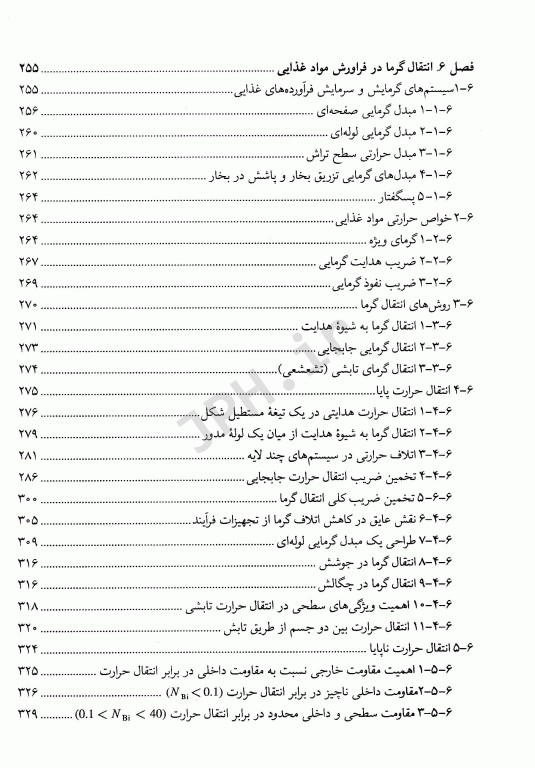 فصل ۶. انتقال گرما در فراورش مواد غذایی ۲۵۵
۶-۱سیستم‌های گرمایش و سرمایش فرآورده‌های غذایی ۲۵۵
۶-۱-۱ مبدل گرمایی صفحه‌ای ۲۵۶
۶-۱-۲ مبدل گرمایی لوله‌ای ۲۶۰
۶-۱-۳ مبدل حرارتی سطح تراش ۲۶۱
۶-۱-۴ مبدل‌های گرمایی تزریق بخار و پاشش در بخار ۲۶۲
۶-۱-۵ پسگفتار ۲۶۴
۶-۲ خواص حرارتی مواد غذایی ۲۶۴
۶-۲-۱ گرمای ویژه ۲۶۴
۶-۲-۲ ضریب هدایت گرمایی ۲۶۷
۶-۲-۳ ضریب نفوذ گرمایی ۲۶۹
۶-۳ روش‌های انتقال گرما ۲۷۰
۶-۳-۱ انتقال گرما به شیوهٔ هدایت ۲۷۱
۶-۳-۲ انتقال گرمایی جابجایی ۲۷۳
۶-۳-۳ انتقال گرمای تابشی (تشعشعی) ۲۷۴
۶-۴ انتقال حرارت پایا ۲۷۵
۶-۴-۱ انتقال حرارت هدایتی در یک تیغهٔ مستطیل شکل ۲۷۶
۶-۴-۲ انتقال گرما به شیوهٔ هدایت از میان یک لولهٔ مدور ۲۷۹
۶-۴-۳ اتلاف حرارتی در سیستم‌های چند لایه ۲۸۱
۶-۴-۴ تخمین ضریب انتقال حرارت جابجایی ۲۸۶
۶-۶-۵ تخمین ضریب کلی انتقال گرما ۳۰۰
۶-۴-۶ نقش عایق در کاهش اتلاف گرما از تجهیزات فرآیند ۳۰۵
۶-۴-۷ طراحی یک مبدل گرمایی لوله‌ای ۳۰۹
۶-۴-۸ انتقال گرما در جوشش ۳۱۶
۶-۴-۹ انتقال گرما در چگالش ۳۱۶
۶-۴-۱۰ اهمیت ویژگی‌های سطحی در انتقال حرارت تابشی ۳۱۸
۶-۴-۱۱ انتقال حرارت بین دو جسم از طریق تابش ۳۲۰
۶-۵ انتقال حرارت ناپایا ۳۲۴
۶-۵-۱ اهمیت مقاومت خارجی نسبت به مقاومت داخلی در برابر انتقال حرارت ۳۲۵
۶-۵-۲مقاومت داخلی ناچیز در برابر انتقال حرارت (N Bi < 0.1) ۳۲۶
۶-۵-۳ مقاومت سطحی و داخلی محدود در برابر انتقال حرارت (0.1 < N Bi < 40) ۳۲۹
JPH.ir